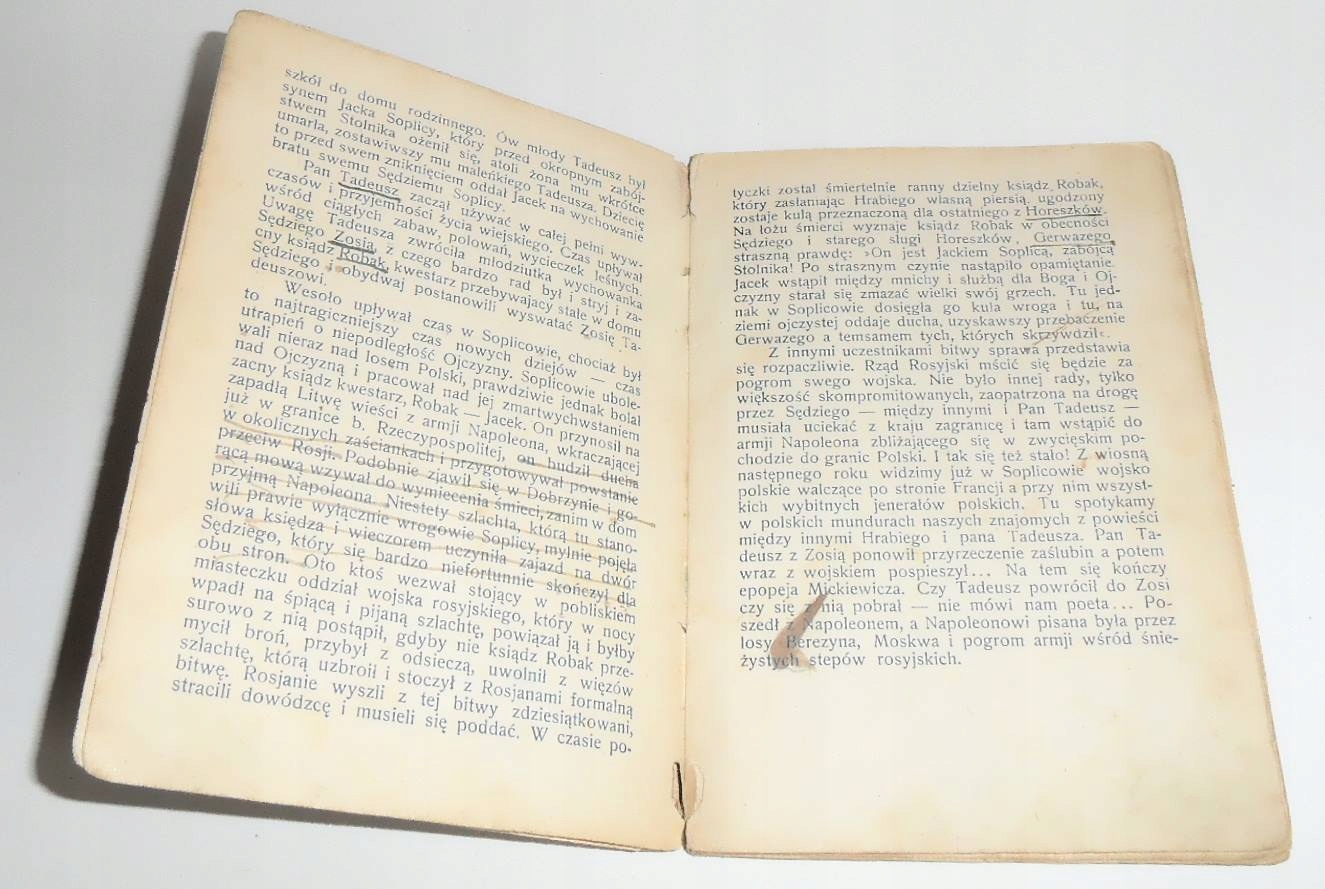 szkół do domu rodzinnego. Ów młody Tadeusz był
synem Jacka Soplicy, który przed okropnym zabój-
stwem Stolnika ożenił się, atoli żona mu wkrótce
umarła, zostawiwszy mu maleńkiego Tadeusza. Dziecię
to przed swem zniknięciem oddał Jacek na wychowanie
bratu swemu Sędziemu Soplicy.
Pan Tadeusz zaczął używać w całej pełni wyw-
czasów i przyjemności życia wiejskiego. Czas upływał
wśród ciągłych zabaw, polowań, wycieczek leśnych.
Uwagę Tadeusza zwróciła młodziutka wychowanka
Sędziego Zosia, z czego bardzo rad był i stryj i za-
cny ksiądz Robak, kwestarz przebywający stale w domu
Sędziego i obydwaj postanowili wyswatać Zosię Ta-
deuszowi.
Wesoło upływał czas w Soplicowie, chociaż był
to najtragiczniejszy czas nowych dziejów — czas
utrapień o niepodległość Ojczyzny. Soplicowie ubole-
wali nieraz nad losem Polski, prawdziwie jednak bolał
nad Ojczyzną i pracował nad jej zmartwychwstaniem
zacny ksiądz kwestarz, Robak — Jacek. On przynosił na
zapadłą Litwę wieści z armji Napoleona, wkraczającej
już w granice b. Rzeczypospolitej, on budził ducha
w okolicznych zaściankach i przygotowywał powstanie
przeciw Rosji. Podobnie zjawił się w Dobrzynie i go-
rącą mową wzywał do wymiecenia śmieci, zanim w dom
przyjmą Napoleona. Niestety szlachta, którą tu stano-
wili prawie wyłącznie wrogowie Soplicy, mylnie pojęła
słowa księdza i wieczorem uczyniła zajazd na dwór
Sędziego, który się bardzo niefortunnie skończył dla
obu stron. Oto ktoś wezwał stojący w pobliskiem
miasteczku oddział wojska rosyjskiego, który w nocy
wpadł na śpiącą i pijaną szlachtę, powiązał ją i byłby
surowo z nią postąpił, gdyby nie ksiądz Robak prze-
mycił broń, przybył z odsieczą, uwolnił z więzów
szlachtę, którą uzbroił i stoczył z Rosjanami formalną
bitwę. Rosjanie wyszli z tej bitwy zdziesiątkowani,
stracili dowódzcę i musieli się poddać. W czasie po-
tyczki został śmiertelnie ranny dzielny ksiądz Robak,
który zasłaniając Hrabiego własną piersią, ugodzony
zostaje kulą przeznaczoną dla ostatniego z Horeszków.
Na łożu śmierci wyznaje ksiądz Robak w obecności
Sędziego i starego sługi Horeszków, Gerwazego
straszną prawdę: »On jest Jackiem Soplicą, zabójcą
Stolnika! Po strasznym czynie nastąpiło opamiętanie.
Jacek wstąpił między mnichy i służbą dla Boga i Oj-
czyzny starał się zmazać wielki swój grzech. Tu jed-
nak w Soplicowie dosięgła go kula wroga i tu, na
ziemi ojczystej oddaje ducha, uzyskawszy przebaczenie
Gerwazego a temsamem tych, których skrzywdził«.
Z innymi uczestnikami bitwy sprawa przedstawia
się rozpaczliwie. Rząd Rosyjski mścić się będzie za
pogrom swego wojska. Nie było innej rady, tylko
większość skompromitowanych, zaopatrzona na drogę
przez Sędziego — między innymi i Pan Tadeusz —
musiała uciekać z kraju zagranicę i tam wstąpić do
armji Napoleona zbliżającego się w zwycięskim po-
chodzie do granic Polski. I tak się też stało! Z wiosną
następnego roku widzimy już w Soplicowie wojsko
polskie walczące po stronie Francji a przy nim wszyst-
kich wybitnych jenerałów polskich. Tu spotykamy
w polskich mundurach naszych znajomych z powieści
między innymi Hrabiego i pana Tadeusza. Pan Ta-
deusz z Zosią ponowił przyrzeczenie zaślubin a potem
wraz z wojskiem pospieszył... Na tem się kończy
epopeja Mickiewicza. Czy Tadeusz powrócił do Zosi
czy się z nią pobrał — nie mówi nam poeta... Po-
szedł z Napoleonem, a Napoleonowi pisana była przez
losy Berezyna, Moskwa i pogrom armji wśród śnie-
żystych stepów rosyjskich.